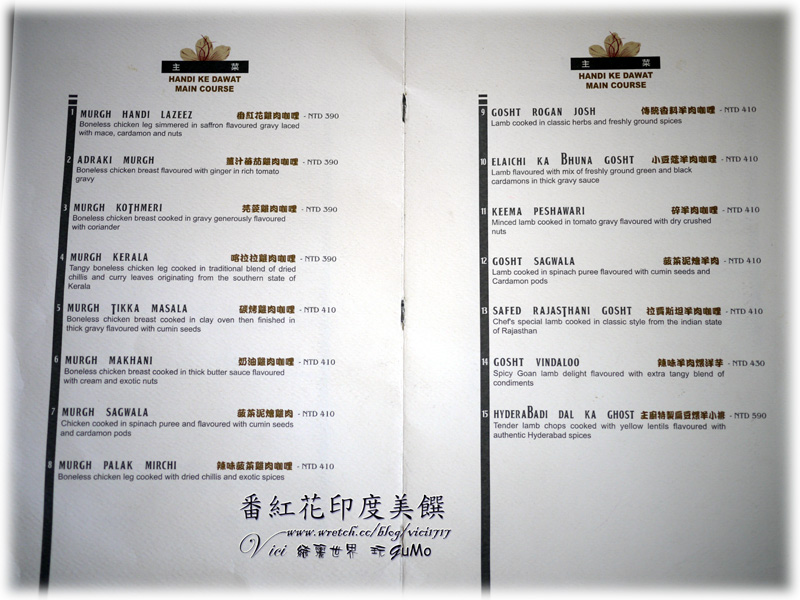 主 菜
HANDI KE DAWAT
MAIN COURSE
1 MURGH HANDI LAZEEZ 番紅花雞肉咖哩 - NTD 390
Boneless chicken leg simmered in saffron flavoured gravy laced
with mace, cardamon and nuts
2 ADRAKI MURGH 薑汁蕃茄雞肉咖哩 - NTD 390
Boneless chicken breast flavoured with ginger in rich tomato
gravy
3 MURGH KOTHMERI 芫荽雞肉咖哩 - NTD 390
Boneless chicken breast cooked in gravy generously flavoured
with coriander
4 MURGH KERALA 喀拉拉雞肉咖哩 - NTD 390
Tangy boneless chicken leg cooked in traditional blend of dried
chillis and curry leaves originating from the southern state of
Kerala
5 MURGH TIKKA MASALA 碳烤雞肉咖哩 - NTD 410
Boneless chicken breast cooked in clay oven then finished in
thick gravy flavoured with cumin seeds
6 MURGH MAKHANI 奶油雞肉咖哩 - NTD 410
Boneless chicken breast cooked in thick butter sauce flavoured
with cream and exotic nuts
7 MURGH SAGWALA 菠菜泥燴雞肉 - NTD 410
Chicken cooked in spinach puree and flavoured with cumin seeds
and cardamon pods
8 MURGH PALAK MIRCHI 辣味菠菜雞肉咖哩 - NTD 410
Boneless chicken leg cooked with dried chillis and exotic spices
主 菜
HANDI KE DAWAT
MAIN COURSE
9 GOSHT ROGAN JOSH 傳統香料羊肉咖哩 - NTD 410
Lamb cooked in classic herbs and freshly ground spices
10 ELAICHI KA BHUNA GOSHT 小豆蔻羊肉咖哩 - NTD 410
Lamb flavoured with mix of freshly ground green and black
cardamons in thick gravy sauce
11 KEEMA PESHAWARI 碎羊肉咖哩 - NTD 410
Minced lamb cooked in tomato gravy flavoured with dry crushed
nuts
12 GOSHT SAGWALA 菠菜泥燴羊肉 - NTD 410
Lamb cooked in spinach puree flavoured with cumin seeds and
Cardamon pods
13 SAFED RAJASTHANI GOSHT 拉賈斯坦羊肉咖哩 - NTD 410
Chef's special lamb cooked in classic style from the indian state
of Rajasthan
14 GOSHT VINDALOO 辣味羊肉燴洋芋 - NTD 430
Spicy Goan lamb delight flavoured with extra tangy blend of
condiments
15 HYDERABADI DAL KA GHOST 主廚特製扁豆燴羊小排 - NTD 590
Tender lamb chops cooked with yellow lentils flavoured with
authentic Hyderabad spices
番紅花印度美饌
www.wretch.cc/blog/vici1717
Vici 世界 玩GuMo